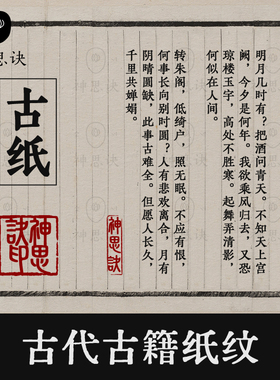 思诀
古纸
明月几时有？把酒问青天。不知天上宫
阙，今夕是何年。我欲乘风归去，又恐
琼楼玉宇，高处不胜寒。起舞弄清影，
何似在人间。
转朱阁，低绮户，照无眠。不应有恨，
何事长向别时圆？人有悲欢离合，月有
阴晴圆缺，此事古难全。但愿人长久，
千里共婵娟。
神思
訣印
神思诀
古代古籍纸纹